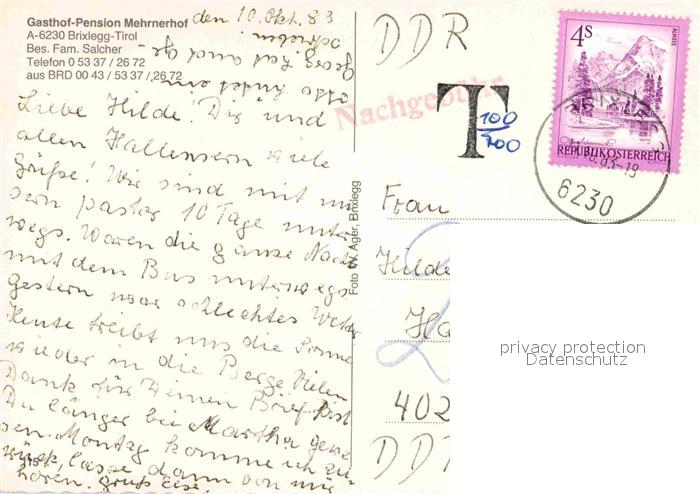 Gasthof-Pension Mehrnerhof
A-6230 Brixlegg-Tirol
Bes. Fam. Salcher
Telefon 0 53 37 / 26 72
aus BRD 00 43 / 53 37 / 26 72
den 10. Okt. 83
Liebe Hilde! Dir und
allen Hallensern viele
Grüße! Wir sind mit un
serm Pastor 10 Tage unter
wegs. Waren die ganze Nacht
mit dem Bus unterwegs
Gestern war schlechtes Wetter
Heute treibt uns die Sonne
wieder in die Berge. Vielen
Dank für Deinen Brief. Bist
Du länger bei Martha gewe
sen. Montag komme ich zu
rück, lasse dann von mir
hören. Gruß Else.
Foto W. Ager, Brixlegg
DDR
Nachgebühr
T
100
700
4S
ALMSEE
REPUBLIK ÖSTERREICH
BRIXLEGG
83-19
6230
Frau
Hilde
Ha
402
DD
privacy protection
Datenschutz